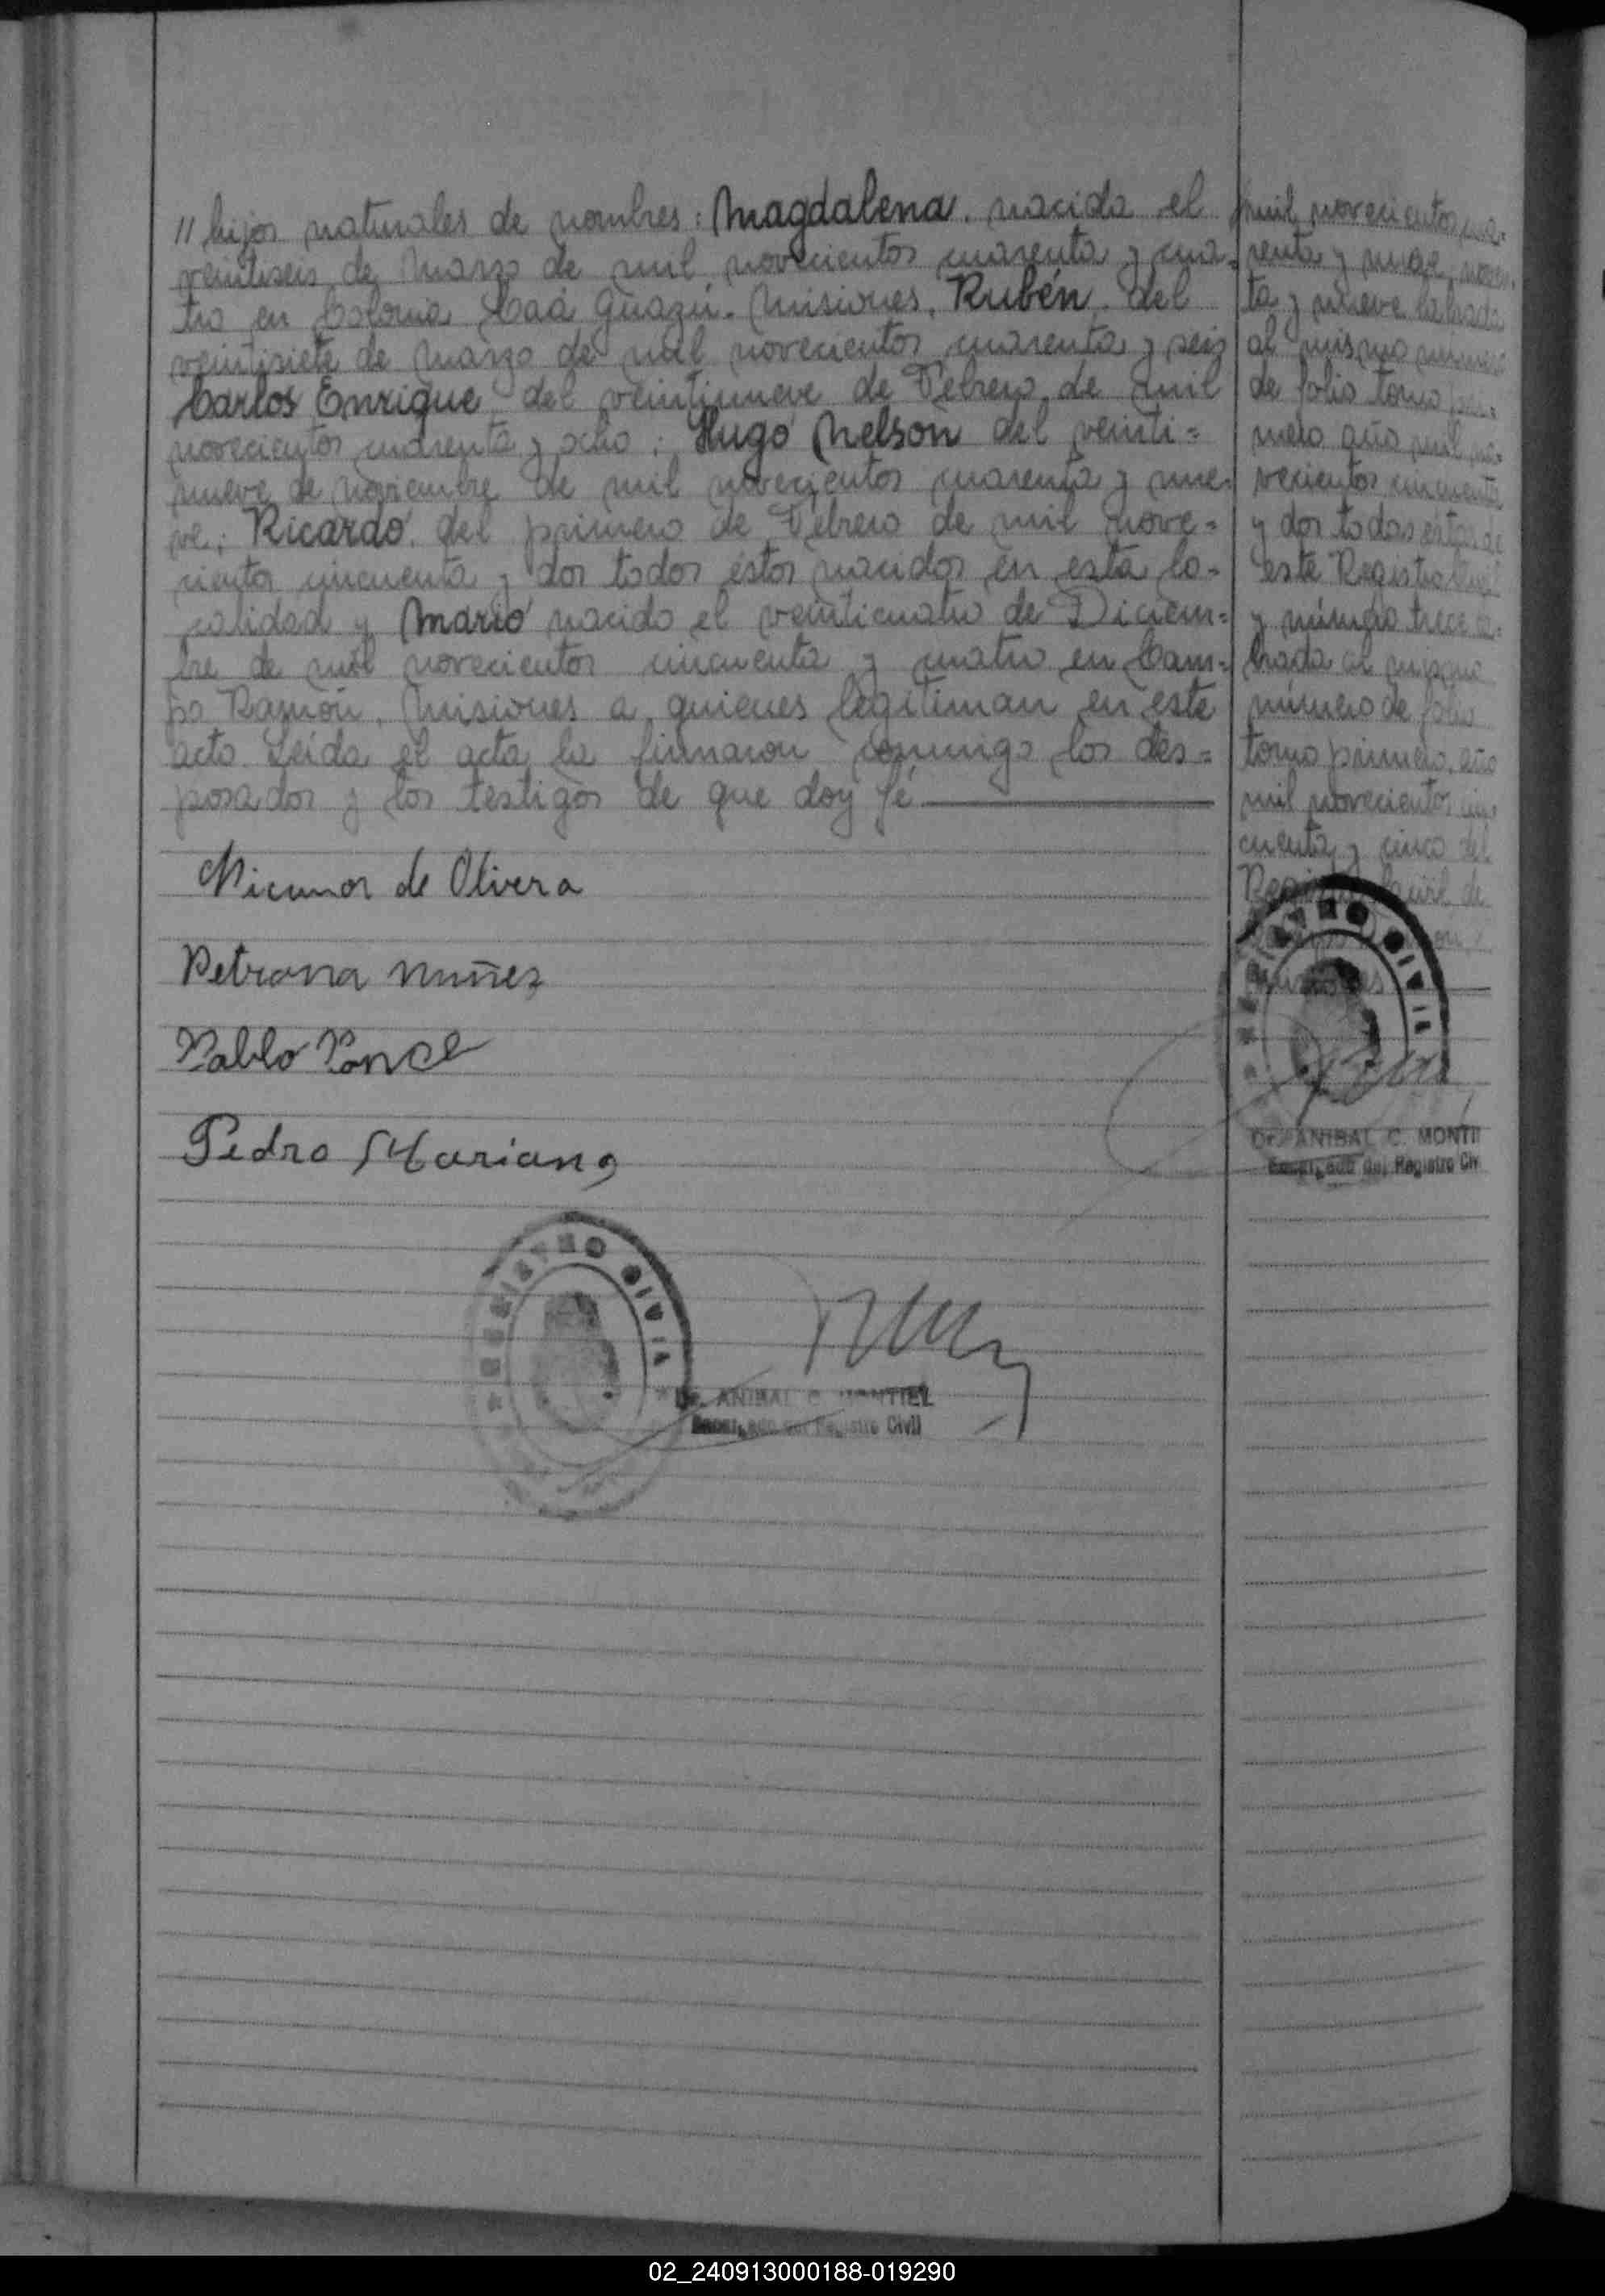 // hijos naturales de nombres: Magdalena. nacida el
veintiseis de Marzo de mil novecientos cuarenta y cua=
tro en Colonia Caá Guazú. Misiones, Rubén. del
veintisiete de Marzo de mil novecientos cuarenta y seis
Carlos Enrique del veintinueve de Febrero de mil
novecientos cuarenta y ocho; Hugo Nelson del veinti=
nueve de Noviembre de mil novecientos cuarenta y nue=
ve; Ricardo. del primero de Febrero de mil nove=
cientos cincuenta y dos todos éstos nacidos en esta lo=
calidad y Mario nacido el veinticuatro de Diciem=
bre de mil novecientos cincuenta y cuatro en Cam=
po Ramón, Misiones a quienes legitiman en este
acto. Leída el acta la firmaron conmigo los des=
posados y los testigos de que doy fé
Nicanor de Olivera
Petrona Nuñez
Pablo Ponce
Pedro Mariano
REGISTRO CIVIL
Dr. ANIBAL C. MONTIEL
Encargado del Registro Civil
mil novecientos cua=
renta y nueve, noven=
ta y nueve labrada
al mismo número
de folio tomo pri=
mero año mil no=
vecientos cincuenta
y dos todas éstas de
este Registro Civil
y número trece la=
brada al mismo
número de folio
tomo primero, año
mil novecientos cin=
cuenta y cinco del
Registro Civil de
Misiones
REGISTRO CIVIL
Dr. ANIBAL C. MONTI
Encargado del Registro Civ
02_240913000188-019290